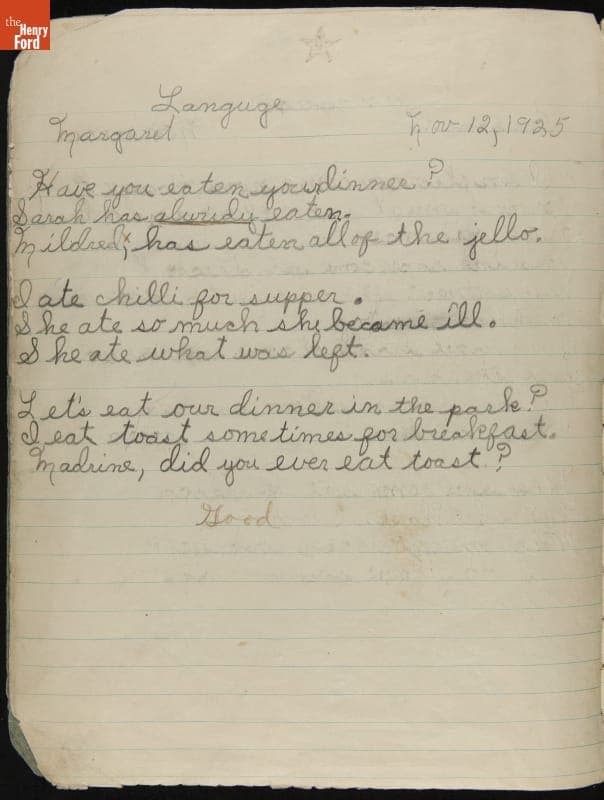 the
Henry
Ford
Languge
Margaret
Nov 12, 1925
Have you eaten your dinner?
Sarah has alwridy eaten.
Mildred, has eaten all of the jello.
I ate chilli for supper.
She ate so much she became ill.
She ate what was left.
Let's eat our dinner in the park?
I eat toast sometimes for breakfast.
Madrine, did you ever eat toast?
Good